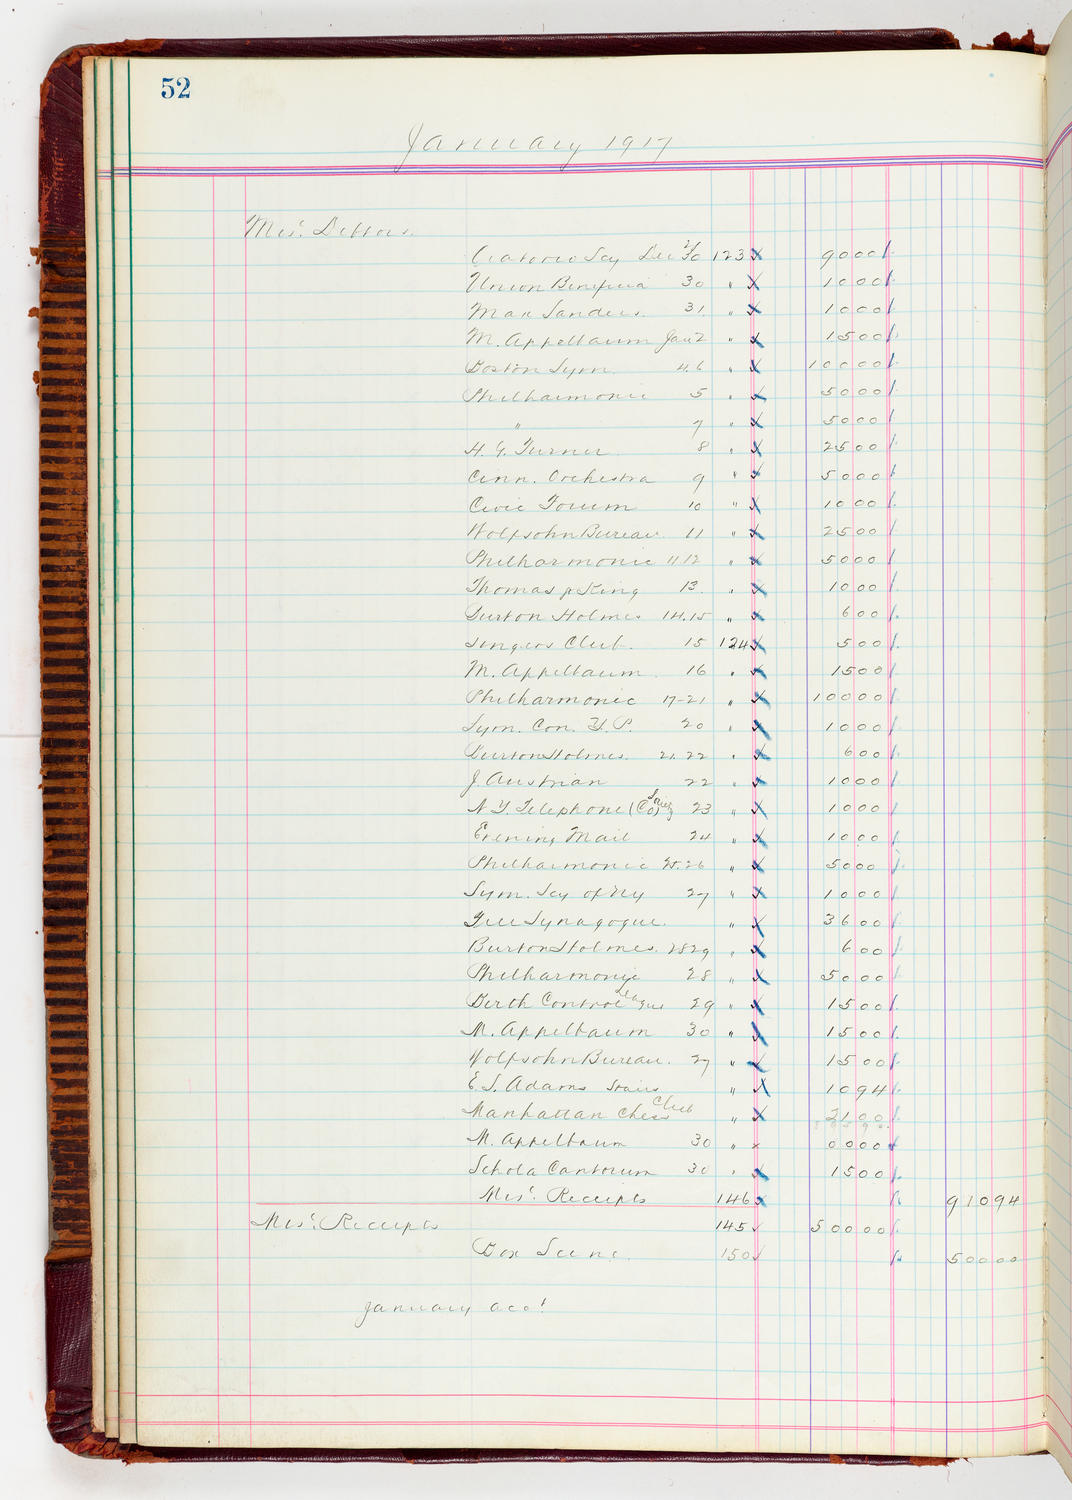 52
January 1917
Mis. Debtors.
Oratorio Soy Dec 30 123 9000
Union Benificia 30 " 1000
Max Sanders 31. " 1000
M. Appelbaum Jan 2 " 1500
Boston Sym. 4.6 " 10000
Philharmonic 5 " 5000
" 7 " 5000
H. G. Turner 8 " 2500
Cinn. Orchestra 9 " 5000
Civic Forum 10 " 1000
Wolfsohn Bureau. 11 " 2500
Philharmonic 11 12 " 5000
Thomas p King 13. " 1000
Burton Holmes 14.15 " 600
Singers Club. 15 124 500
M. Appelbaum. 16 " 1500
Philharmonic 17-21 " 10000
Sym. Con. Y. P. 20 " 1000
Burton Holmes. 21.22 " 600
J. Austrian 22 " 1000
N Y. Telephone (Co) Socy 23 " 1000
Evening Mail 24 " 1000
Philharmonic 25.26 " 5000
Sym. Soy of Ny 27 " 1000
Free Synagogue. " 3600
Burton Holmes. 28 29 " 600
Philharmonic 28 " 5000
Birth Control League 29 " 1500
M. Appelbaum 30 " 1500
Wolfsohn Bureau. 27 " 1500
E. S. Adams Stairs " 1094
Manhattan Chess Club " 2100
M. Appelbaum 30 " 0000
Schola Cantorum 30 " 1500
Mis. Receipts 146 91094
Mis. Receipts 145 50000
Box Scene. 150 50000
January acct